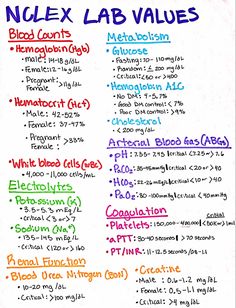 NCLEX LAB VALUES
Blood Counts
• Hemoglobin (Hgb)
• Male: 14-18 g/dL
• Female: 12-16 g/dL
• Pregnant: > 11 g/dL
Female
• Hematocrit (Hct)
• Male: 42-52%
• Female: 37-47%
• Pregnant > 33%
Female
• White Blood Cells (WBC)
• 4,000-11,000 c/mL
Electrolytes
• Potassium (K)
• 3.5-5.3 mEq/L
• Critical < 3 or > 7
• Sodium (Na⁺)
• 135-145 mEq/L
• Critical < 120 or > 160
Renal Function
• Blood Urea Nitrogen (BUN)
• 10-20 mg/dL
• Critical: > 100 mg/dL
Metabolism
• Glucose
• Fasting: 70-110 mg/dL
• Random: ≤ 200 mg/dL
• Critical: < 50 or > 400
• Hemoglobin A1C
• No DM: 4-5.7%
• Good DM control: < 7%
• Poor DM control: > 9%
• Cholesterol
• < 200 mg/dL
Arterial Blood Gas (ABGs)
• pH: 7.35-7.45 | critical < 7.25 -
• PaCO₂: 35-45 mmHg | critical < 20 or > 60
• HCO₃: 22-26 | critical < 10 or > 40
• PaO₂: | critical < 40
Coagulation critical
• Platelets: 150,000-400,000 |
• aPTT: 30-40 seconds | > 70 seconds
• PT/INR: 11-12.5 seconds/
• Creatine
• Male: 0.6-1.2 mg/dL
• Female: 0.5-1.1 mg/dL
• Critical: > 4 mg/dL